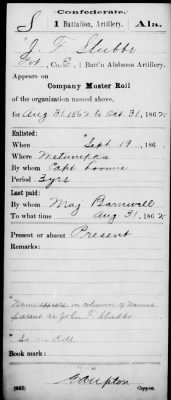 Confederate.
S 1 Battalion, Artillery. Ala.
J. F. Stubbs
Pvt, Co. E, 1 Batt'n Alabama Artillery.
Appears on
Company Muster Roll
of the organization named above,
for Aug 31, 1862 to Oct 31, 1862.
Enlisted:
When Sept 19, 186 .
Where Wetumpka
By whom Capt Loomis
Period 3 yrs
Last paid:
By whom Maj Barnwall
To what time Aug 31, 1862.
Present or absent Present
Remarks:
Name appears in column of Names
Present as John F. Stubbs
So Roll
Book mark:
(642) Copyist.